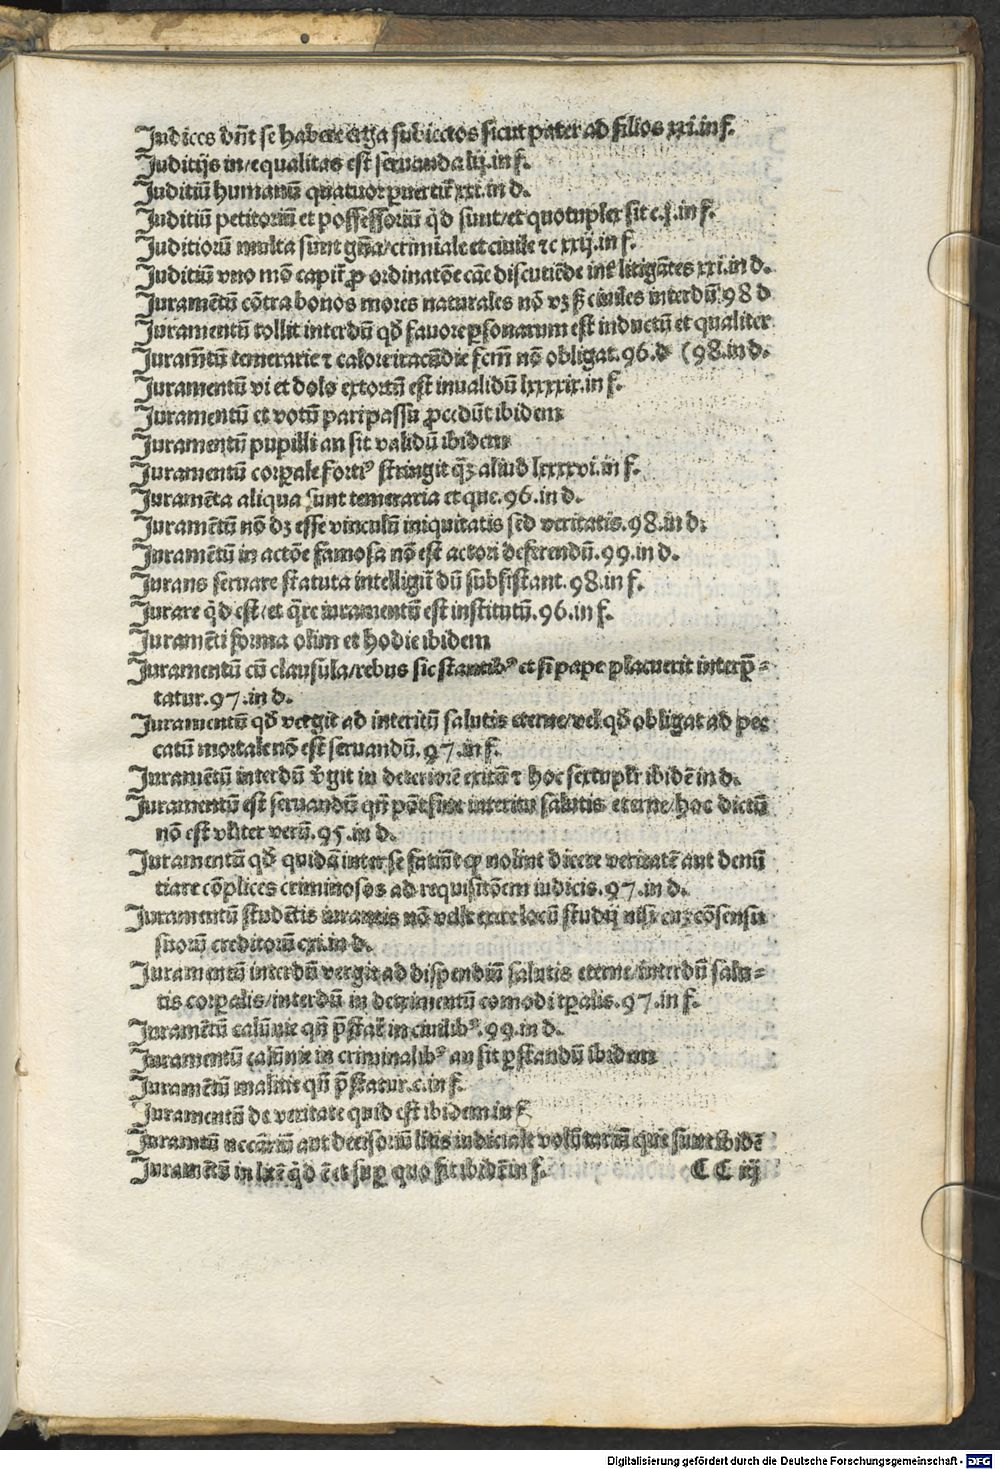 Judices dñt se habere erga subiectos sicut pater ad filios xxi.in f.
Juditijs in/equalitas est seruanda lij.in f.
Juditiũ humanũ quatuor ꝑuertũt xxi.in d.
Juditiũ petitoriũ et possessoriũ q̃d sunt/et quotuplex sit c.j.in f.
Juditiorũ multa sunt gñа/crimiale et ciuile ⁊c xxij.in f.
Juditiũ vno mõ capit̃ ꝓ ordinatõe cãe discutiẽde int̃ litigãtes xxi.in d.
Juramẽtũ cõtra bonos mores naturales nõ vꝫ ſꝫ ciuiles interdũ 98 d
Juramentũ tollit interdũ qd̃ fauore ꝑsonarum est inductũ et qualiter
Juramẽtũ temerarie ⁊ calore iracũdie fcm̃ nõ obligat.96.d (98.in d.
Juramentũ vi et dolo extortũ est inualidũ lxxxxix.in f.
Juramentũ et votũ pari passu ꝓcedũt ibidem
Juramentũ pupilli an sit validũ ibidem
Juramentũ corꝑale forti⁹ stringit q̃ꝫ aliud lxxxxvi.in f.
Juramẽta aliqua sunt temeraria et que.96.in d.
Juramẽtũ nõ dꝫ esse vinculũ iniquitatis sed veritatis.98.in d:
Juramẽtũ in actõe famosa nõ est actori deferendũ.99.in d.
Jurans seruare statuta intelligit̃ dũ subsistant.98.in f.
Jurare q̃d est/et q̃re iuramentũ est institutũ.96.in f.
Juramẽti forma olim et hodie ibidem
Juramentũ cũ clausula/rebus sic stantib⁹ et si pape placuerit interp̃-
tatur.97.in d.
Juramentũ qd̃ vergit ad interitũ salutis eterne/vel qd̃ obligat ad pec
catũ mortale nõ est seruandũ.97.in f.
Juramẽtũ interdũ v̓git in deteriorẽ exitũ ⁊ hoc sextuplr̃ ibidẽ in d.
Juramentũ est seruandũ qñ põt sine interitu salutis eterne/hoc dictũ
nõ est vl̃iter verũ.95.in d.
Juramentũ qd̃ quidã inter se faciũt ꝙ nolint dicere veritatẽ aut denũ
tiare cõplices criminosos ad requisitõem iudicis.97.in d.
Juramentũ studẽtis iurantis nõ velle exire locũ studij nisi cũ cõsensu
suorũ creditorũ cxi.in d.
Juramentũ interdũ vergit ad dispendiũ salutis eterne/interdũ salu-
tis corꝑalis/interdũ in detrimentũ comodi tꝑalis.97.in f.
Juramẽtũ calũnie qñ p̃stat̃ in ciuilib⁹.99.in d.
Juramentũ calũnie in criminalib⁹ an sit p̃standũ ibidem
Juramẽtũ malitie qñ p̃statur.c.in f.
Juramentũ de veritate quid est ibidem in f.
Juramẽtũ necc̃ariũ aut decisoriũ litis iudiciale volũtariũ que sunt ibidẽ
Juramẽtũ in litẽ q̃d ẽ et suꝑ quo fit ibidẽ in f. CC iij
Digitalisierung gefördert durch die Deutsche Forschungsgemeinschaft - DFG